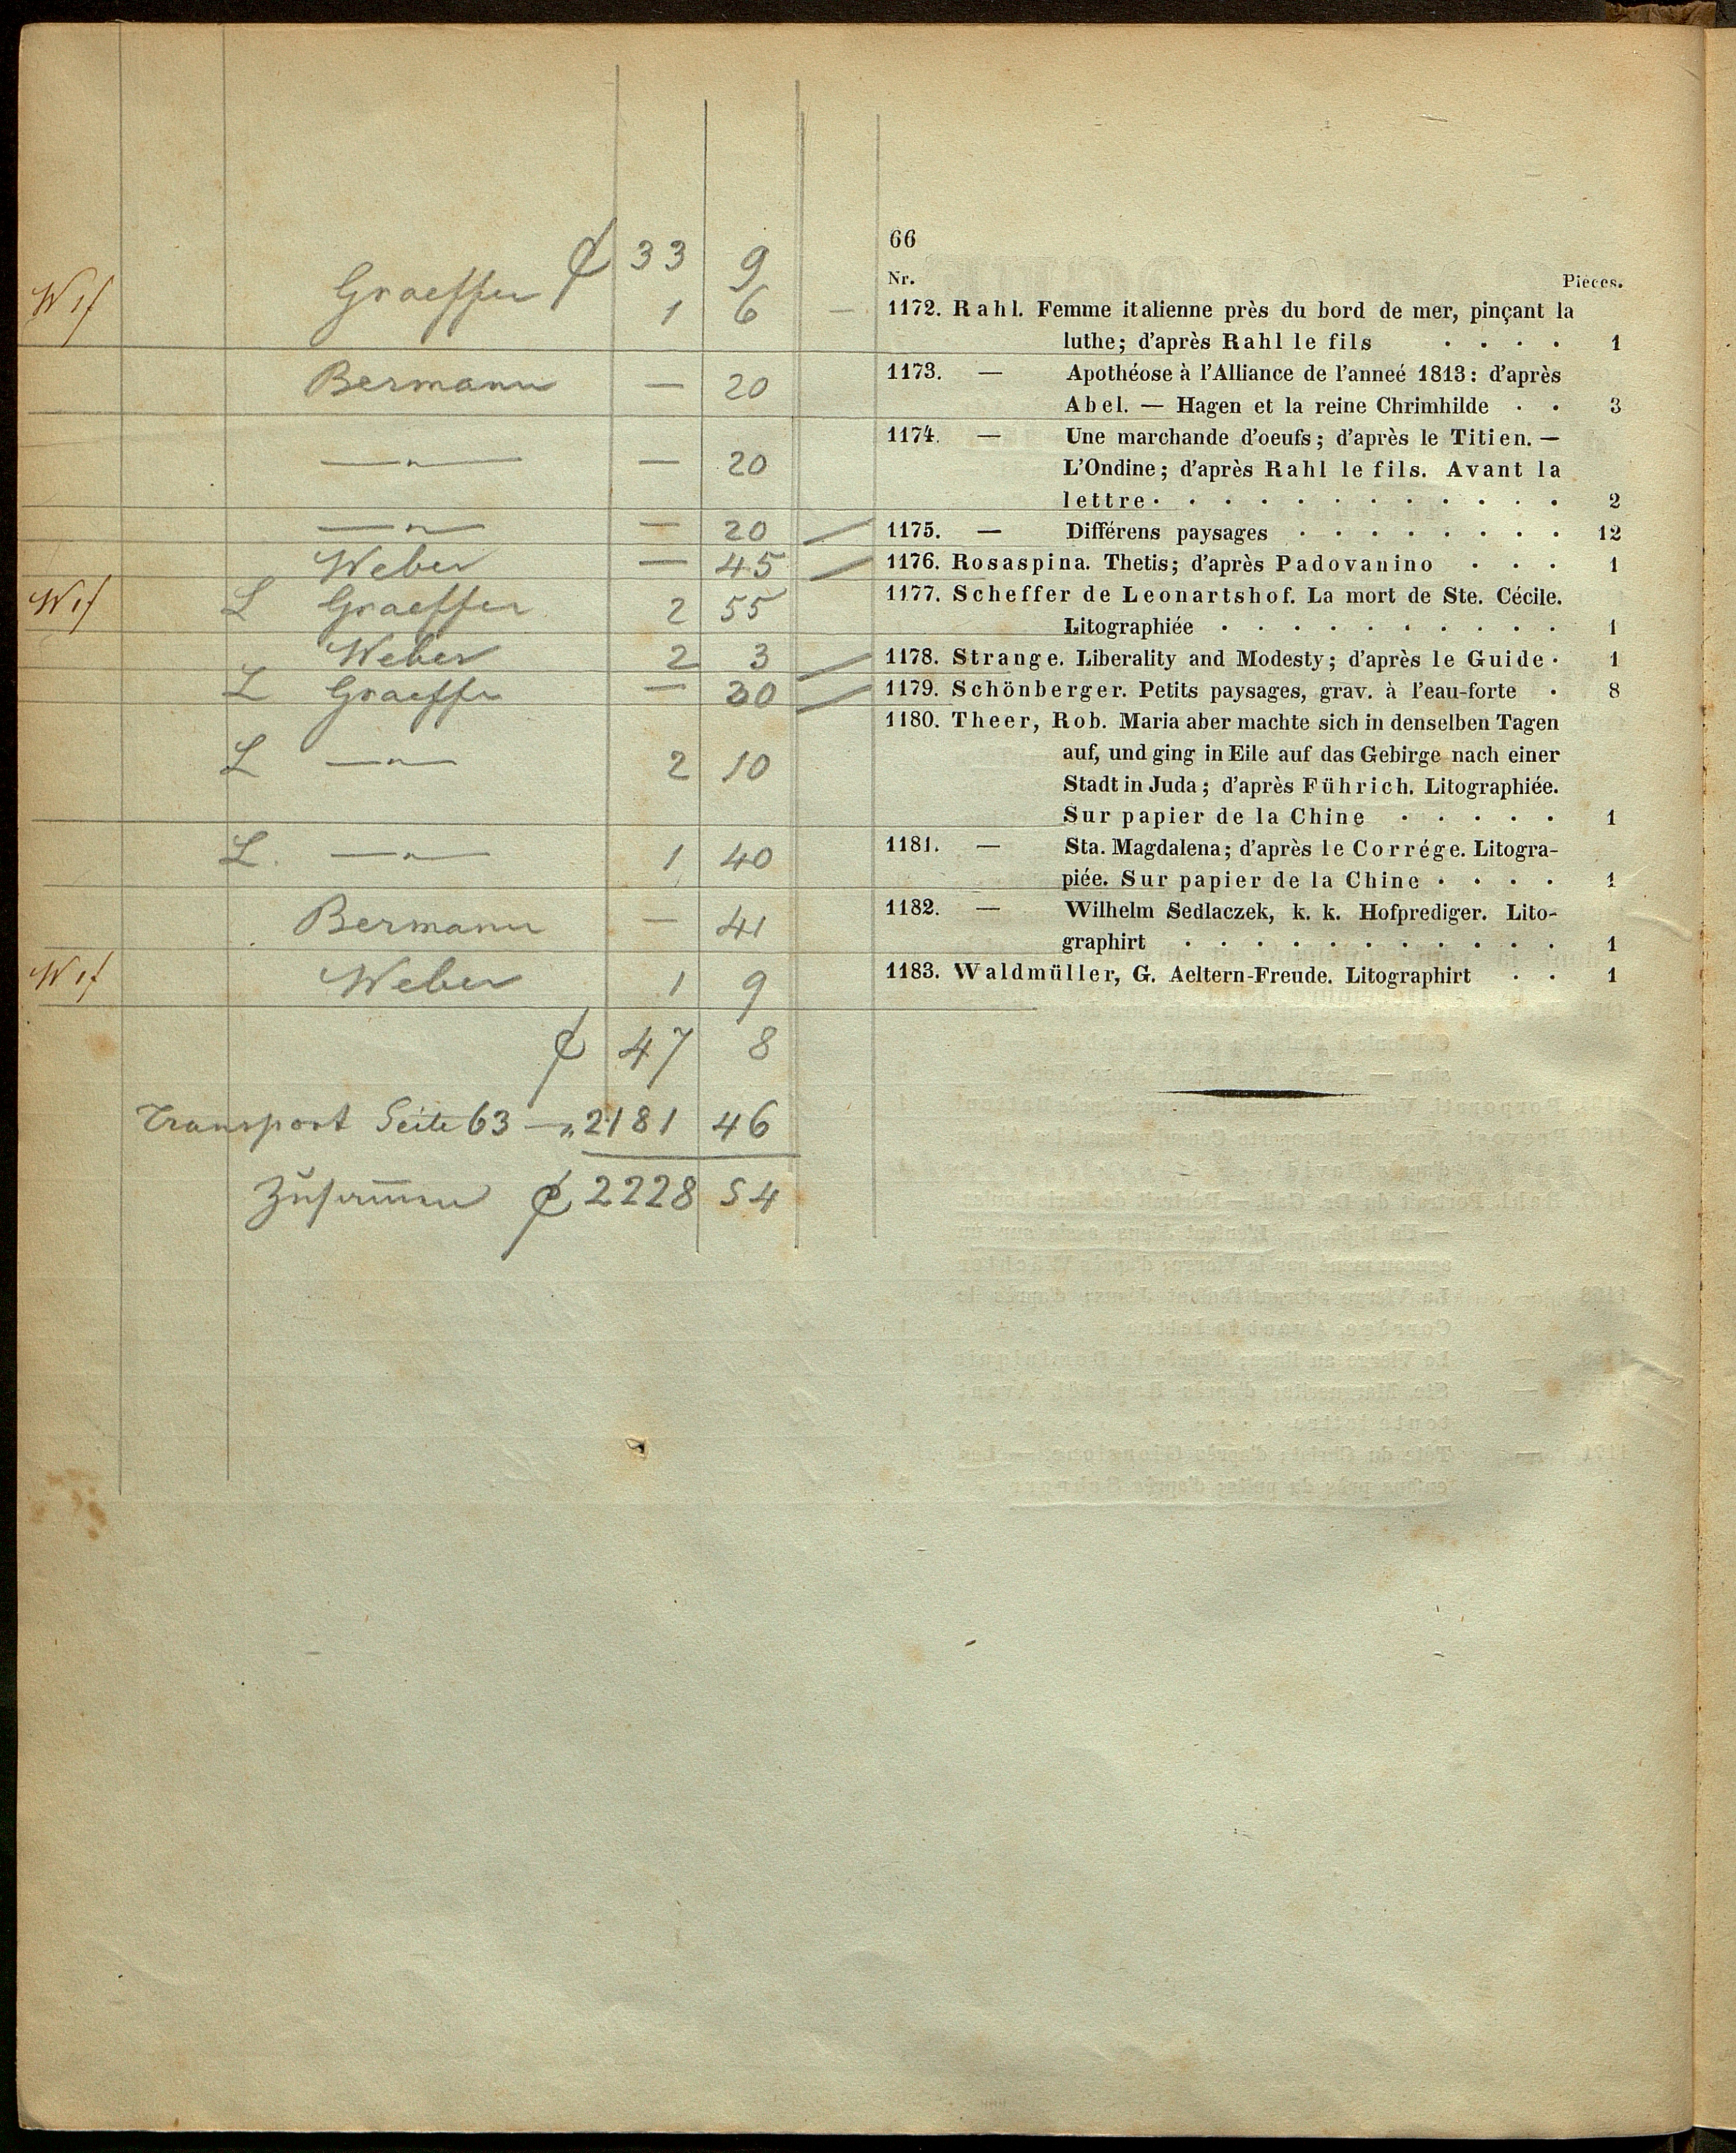 66
Nr. Pièces.
₰ 33 9
W 1f Graeffer 1 6 — 1172. Rahl. Femme italienne près du bord de mer, pinçant la
luthe; d'après Rahl le fils . . . . 1
Bermann — 20 1173. — Apothéose à l'Alliance de l'anneé 1813: d'après
Abel. — Hagen et la reine Chrimhilde . . 3
—〃— — 20 1174. — Une marchande d'oeufs; d'après le Titien. —
L'Ondine; d'après Rahl le fils. Avant la
lettre . . . . . . . . . . . . 2
—〃— — 20 1175. — Différens paysages . . . . . . . . 12
Weber — 45 1176. Rosaspina. Thetis; d'après Padovanino . . . 1
W 1f L Graeffer 2 55 1177. Scheffer de Leonartshof. La mort de Ste. Cécile.
Litographiée . . . . . . . . . . 1
Weber 2 3 1178. Strange. Liberality and Modesty; d'après le Guide . 1
L Graeffer — 30 1179. Schönberger. Petits paysages, grav. à l'eau-forte . 8
L —〃— 2 10 1180. Theer, Rob. Maria aber machte sich in denselben Tagen
auf, und ging in Eile auf das Gebirge nach einer
Stadt in Juda; d'après Führich. Litographiée.
Sur papier de la Chine . . . . . 1
L. —〃— 1 40 1181. — Sta. Magdalena; d'après le Corrége. Litogra-
piée. Sur papier de la Chine . . . . 1
Bermann — 41 1182. — Wilhelm Sedlaczek, k. k. Hofprediger. Lito-
graphirt . . . . . . . . . . . 1
W 1f Weber 1 9 1183. Waldmüller, G. Aeltern-Freude. Litographirt . . 1
₰ 47 8
Transport Seite 63 —〃 2181 46
Zusam̅en ₰ 2228 54